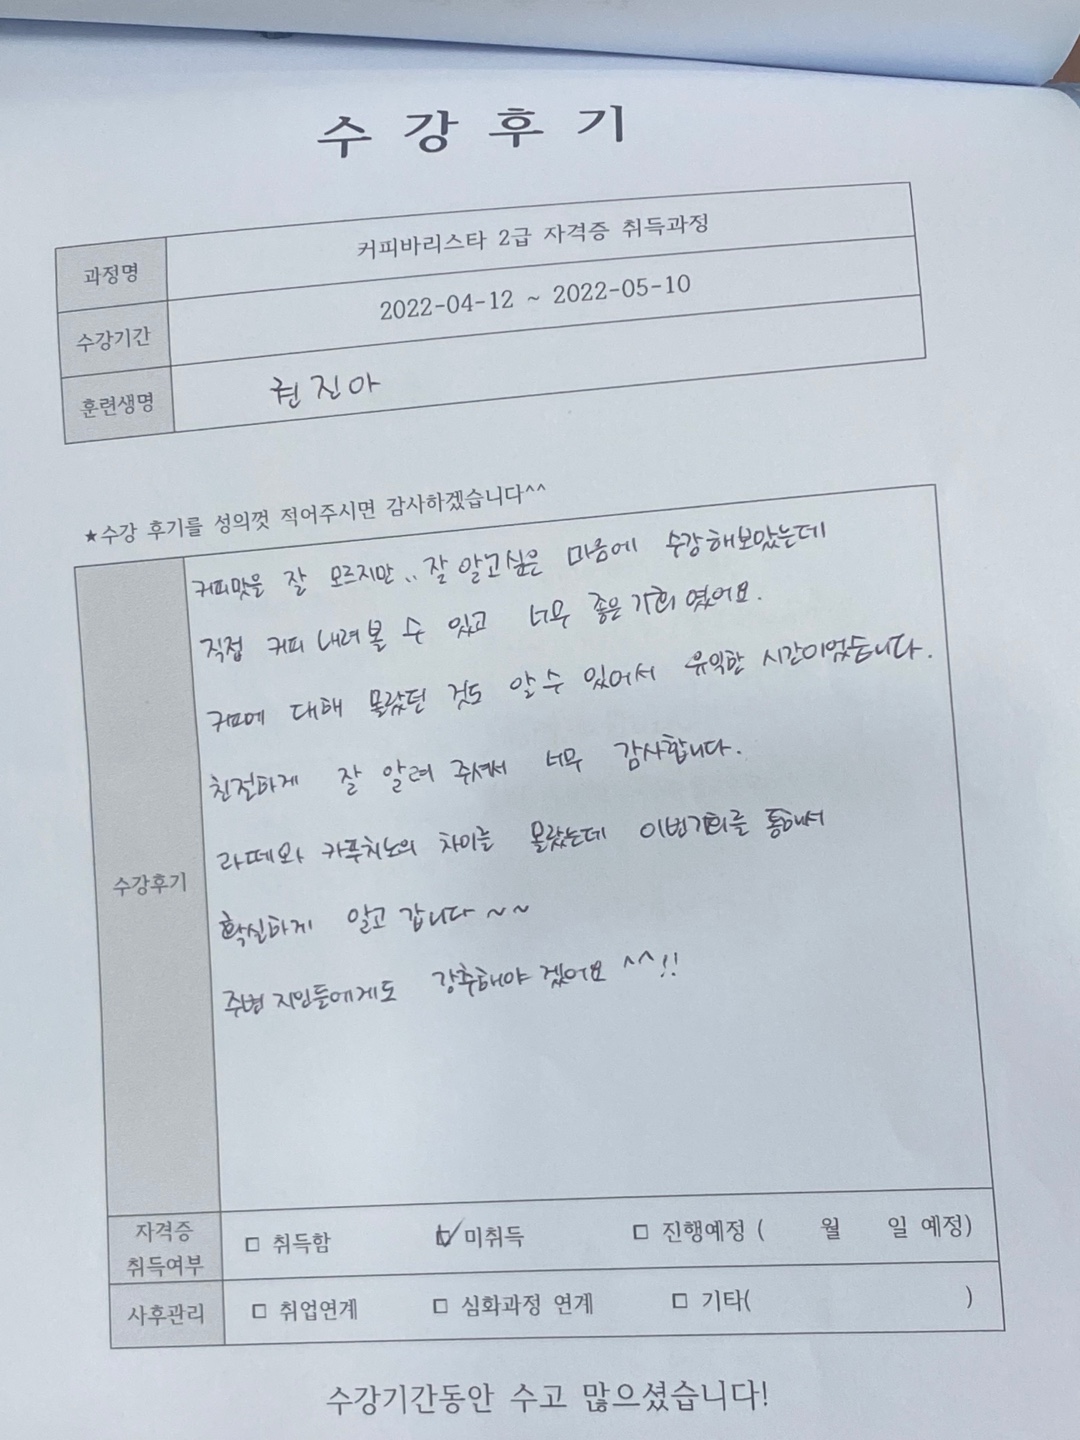 수 강 후 기
과정명 커피바리스타 2급 자격증 취득과정
수강기간 2022-04-12 ~ 2022-05-10
훈련생명 권진아
★수강 후기를 성의껏 적어주시면 감사하겠습니다^^
수강후기
커피맛을 잘 모르지만.. 잘 알고싶은 마음에 수강해보았는데
직접 커피 내려볼 수 있고 너무 좋은 기회였어요.
커피에 대해 몰랐던 것도 알 수 있어서 유익한 시간이었습니다.
친절하게 잘 알려 주셔서 너무 감사합니다.
라떼와 카푸치노의 차이를 몰랐는데 이번기회를 통해서
확실하게 알고 갑니다 ~~
주변 지인들에게도 강추해야 겠어요 ^^!!
자격증 취득여부 □ 취득함 ☑ 미취득 □ 진행예정 ( 월 일 예정)
사후관리 □ 취업연계 □ 심화과정 연계 □ 기타( )
수강기간동안 수고 많으셨습니다!